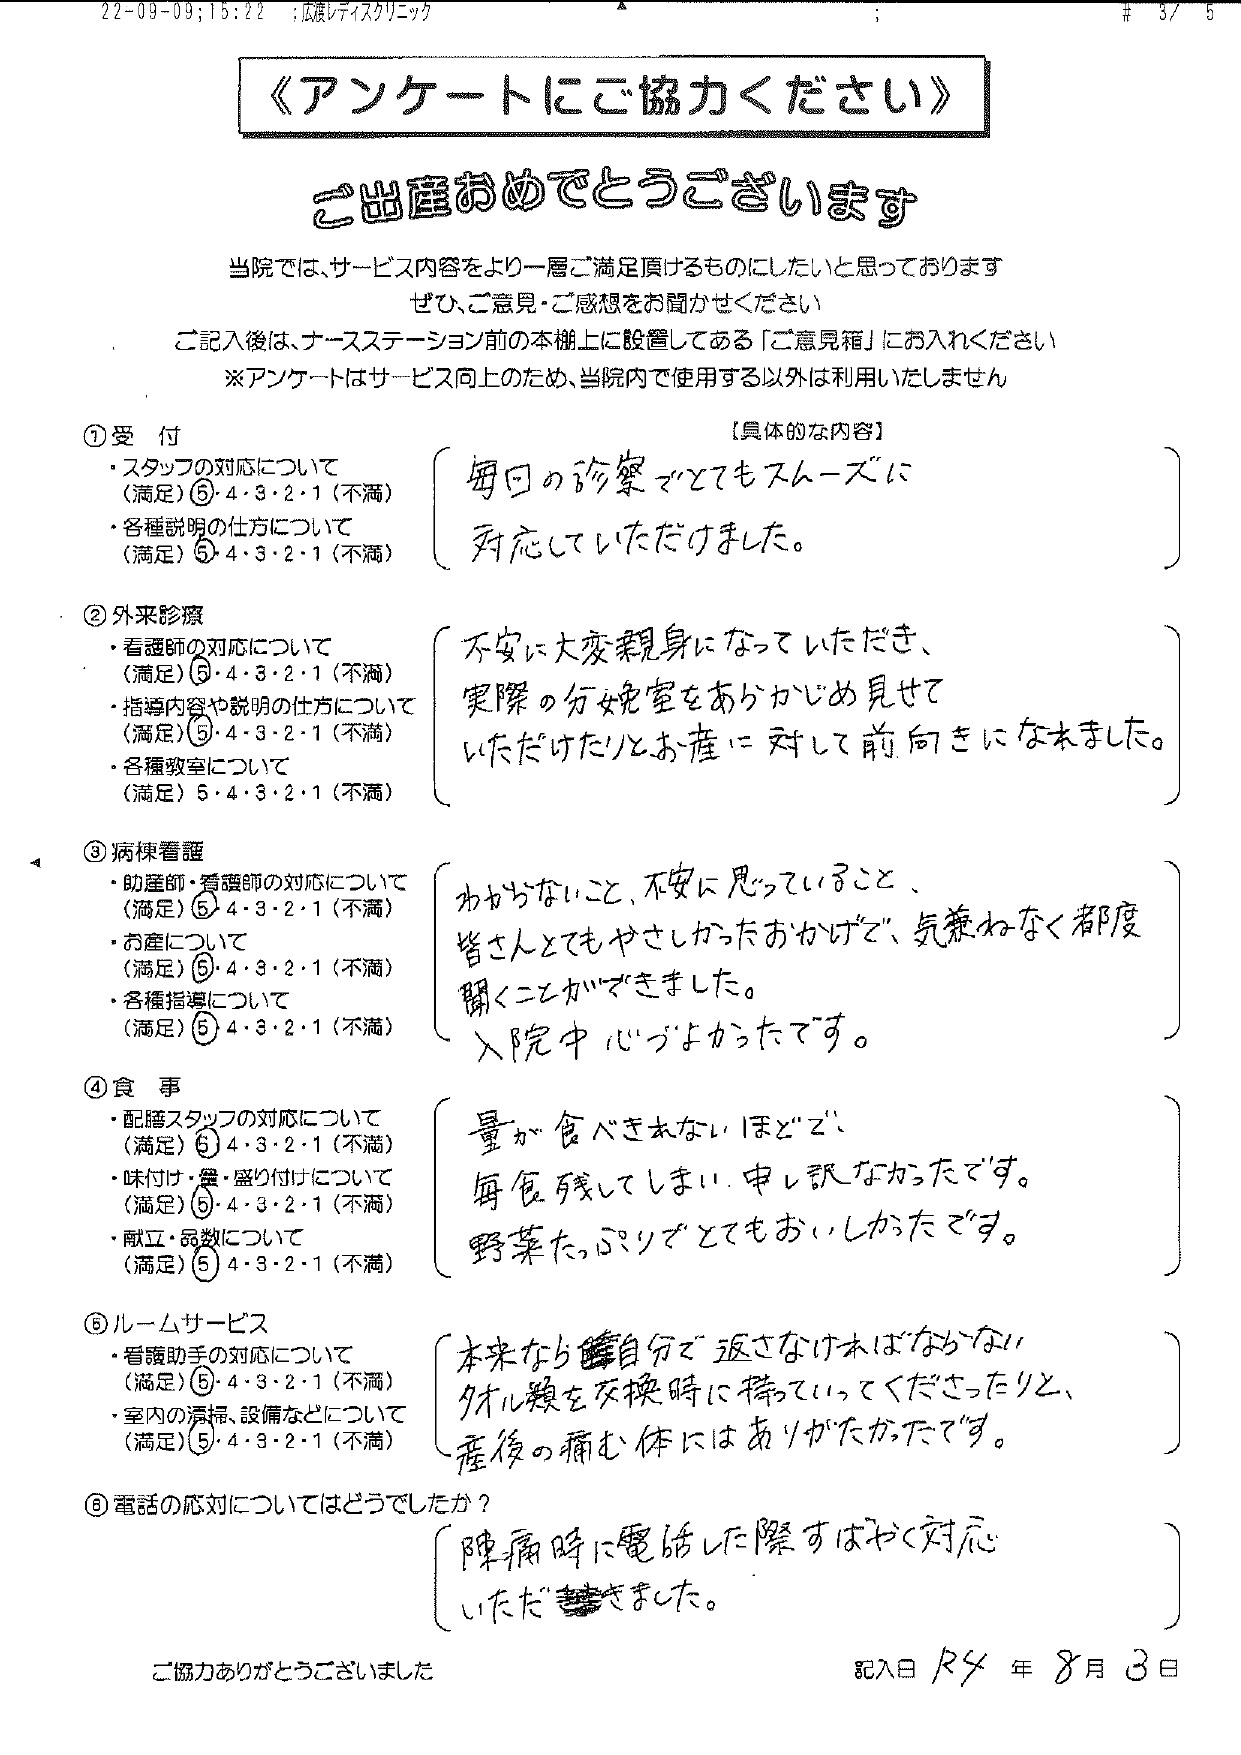 22-09-09;15:22 ;広渡レディスクリニック ; # 3/ 5
《アンケートにご協力ください》
ご出産おめでとうございます
当院では、サービス内容をより一層ご満足頂けるものにしたいと思っております
ぜひ、ご意見・ご感想をお聞かせください
ご記入後は、ナースステーション前の本棚上に設置してある「ご意見箱」にお入れください
※アンケートはサービス向上のため、当院内で使用する以外は利用いたしません
①受 付
【具体的な内容】
・スタッフの対応について
(満足) 5・4・3・2・1 (不満)
・各種説明の仕方について
(満足) 5・4・3・2・1 (不満)
毎回の診察でとてもスムーズに
対応していただけました。
②外来診療
・看護師の対応について
(満足) 5・4・3・2・1 (不満)
・指導内容や説明の仕方について
(満足) 5・4・3・2・1 (不満)
・各種教室について
(満足) 5・4・3・2・1 (不満)
不安に大変親身になっていただき、
実際の分娩室をあらかじめ見せて
いただけたりとお産に対して前向きになれました。
③病棟看護
・助産師・看護師の対応について
(満足) 5・4・3・2・1 (不満)
・お産について
(満足) 5・4・3・2・1 (不満)
・各種指導について
(満足) 5・4・3・2・1 (不満)
わからないこと、不安に思っていること、
皆さんとてもやさしかったおかげで、気兼ねなく都度
聞くことができました。
入院中心づよかったです。
④食 事
・配膳スタッフの対応について
(満足) 5・4・3・2・1 (不満)
・味付け・量・盛り付けについて
(満足) 5・4・3・2・1 (不満)
・献立・品数について
(満足) 5・4・3・2・1 (不満)
量が食べきれないほどで、
毎食残してしまい、申し訳なかったです。
野菜たっぷりでとてもおいしかったです。
⑤ルームサービス
・看護助手の対応について
(満足) 5・4・3・2・1 (不満)
・室内の清掃、設備などについて
(満足) 5・4・3・2・1 (不満)
本来なら自分で返さなければならない
タオル類を交換時に持っていってくださったりと、
産後の痛む体にはありがたかったです。
⑥電話の応対についてはどうでしたか？
陣痛時に電話した際すばやく対応
いただきました。
ご協力ありがとうございました
記入日 R4 年 8月 3日